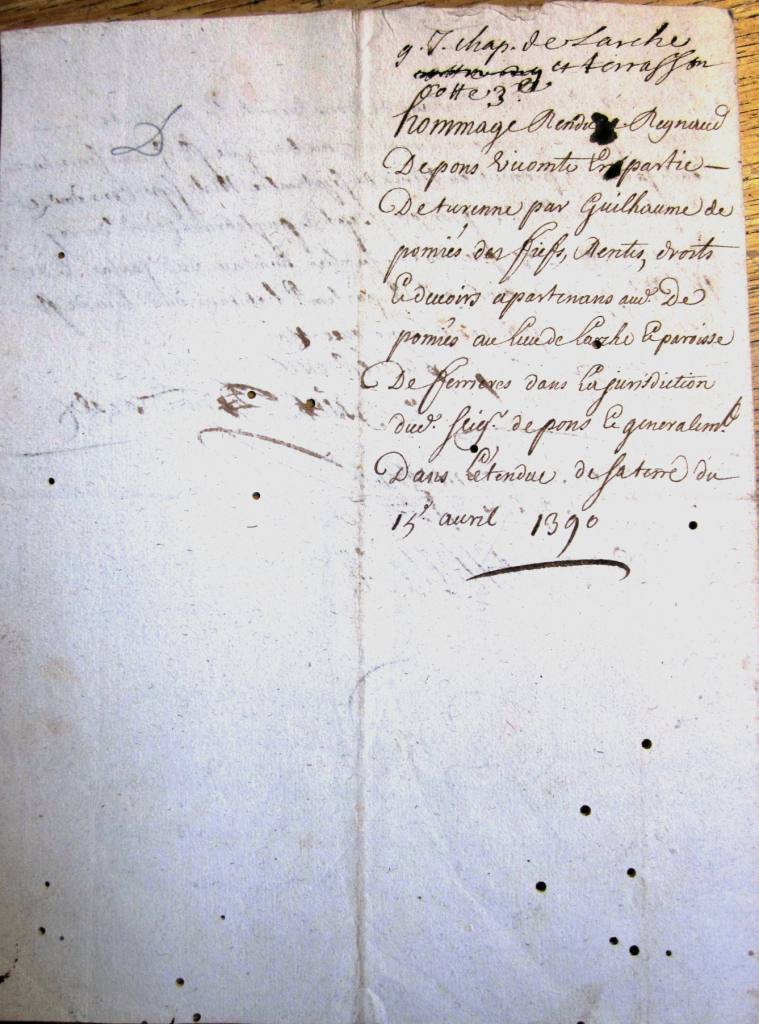 g. J. chap. de Larche
et terrasson
Cotte 3.e
hommage Rendu a Regnaud
De pons vicomte En partie —
De turenne par Guilhaume de
pomiés des fiefs, Rentes, droits
Et devoirs apartenans aud. De
pomiés au lieu de Larche Et paroisse
De ferrieres dans la jurisdiction
dud. seigr. de pons Et generalemt.
Dans l'etendue de sa terre du
15e avril 1390
D